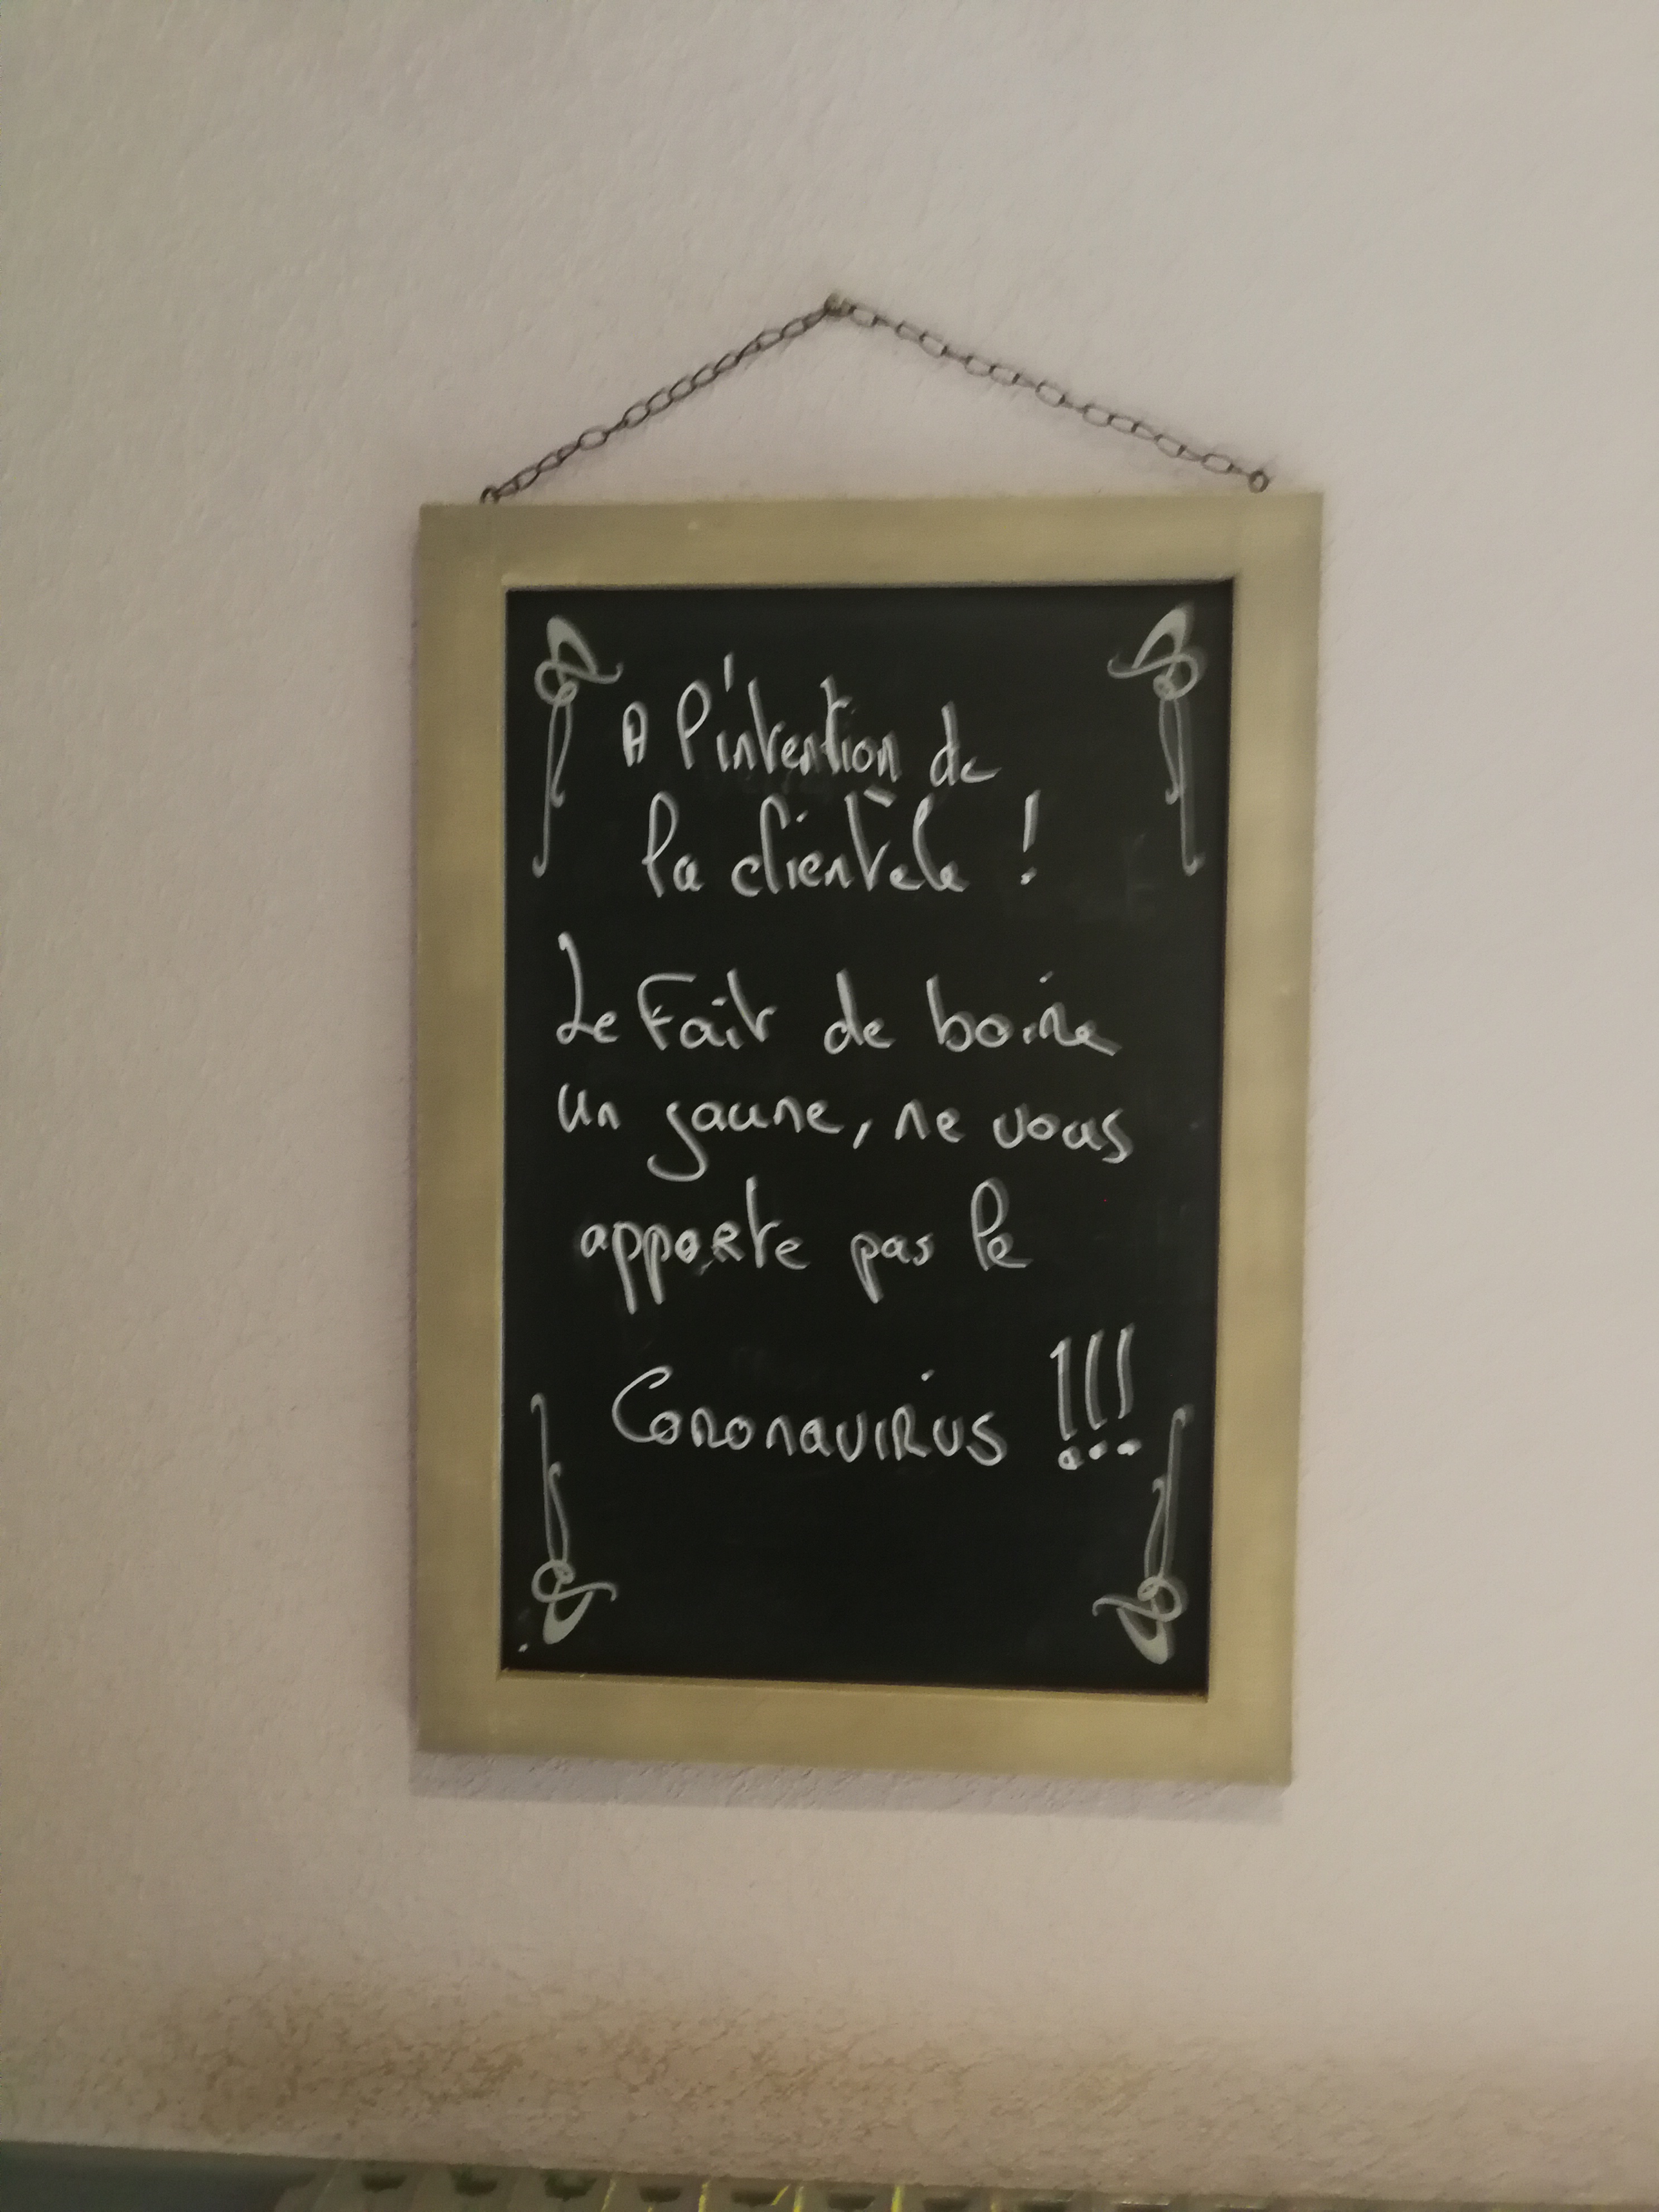 A l'intention de
la clientèle !
Le Fait de boire
un jaune, ne vous
apporte pas le
Coronavirus !!!